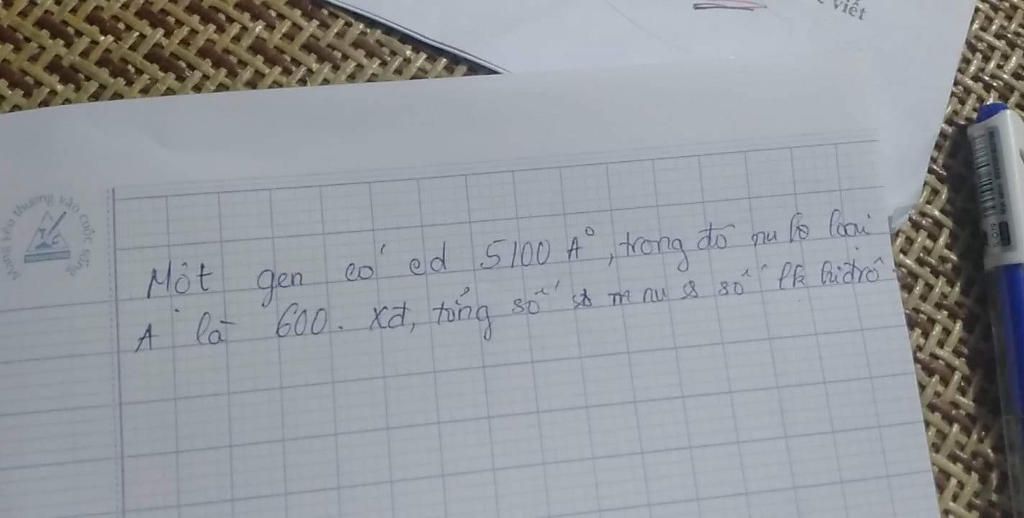 viết
Một gen có cd 5100 A°, trong đó nu lo loại
A là 600. Xđ, tổng số nu & số lk hiđrô